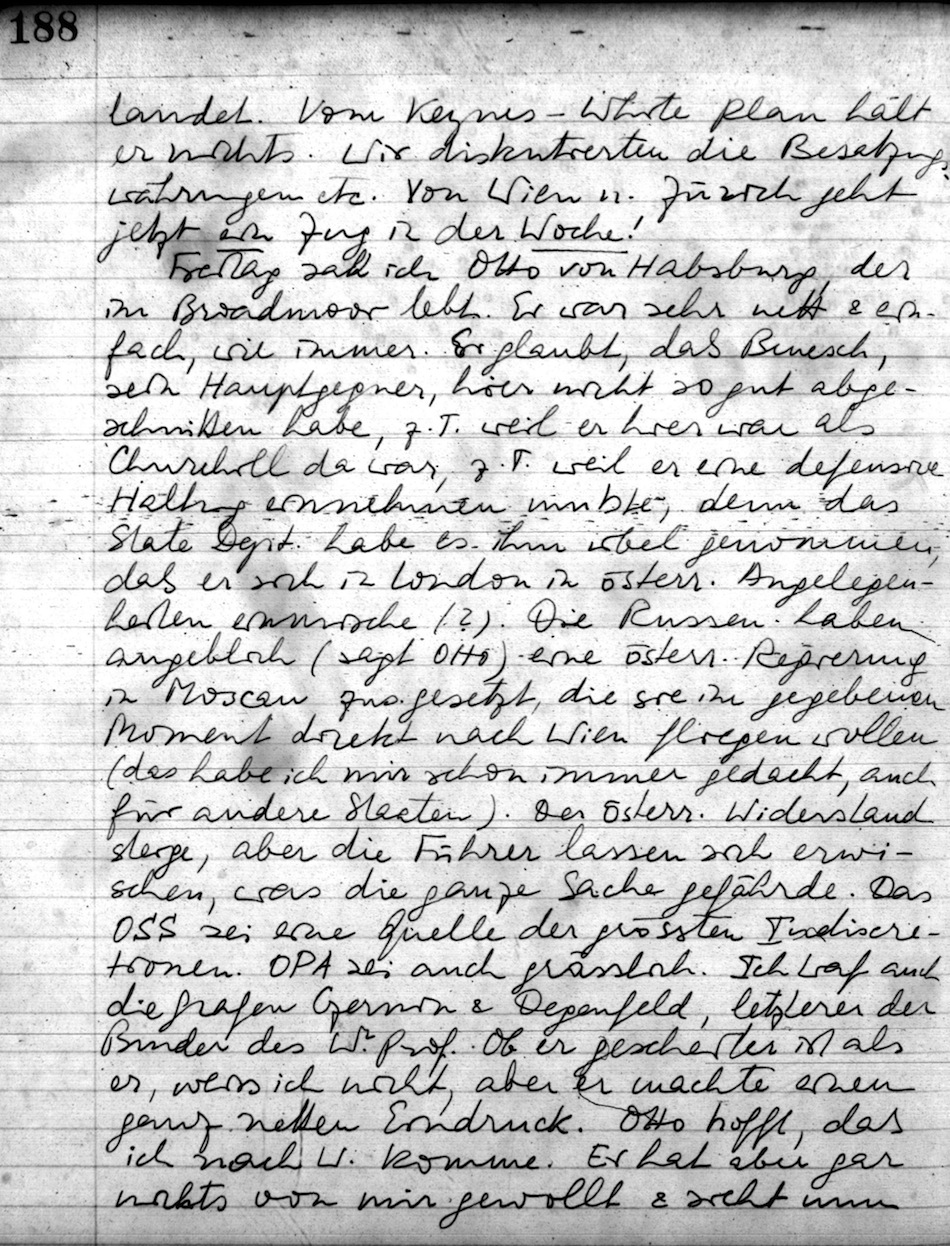 188
landet. Vom Keynes-White Plan hält
er nichts. Wir diskutierten die Besatzungs-
währungen etc. Von Wien n. Zürich geht
jetzt ein Zug in der Woche!
Freitag sah ich Otto von Habsburg, der
im Broadmoor lebt. Er war sehr nett & ein-
fach, wie immer. Er glaubt, das Benesch,
sein Hauptgegner, hier nicht so gut abge-
schnitten habe, z.T. weil er hier war als
Churchill da war, z.T. weil er eine defensive
Haltung einnehmen musste, denn das
State Dept. habe es ihm übel genommen,
das er sich in London in österr. Angelegen-
heiten einmische (?). Die Russen haben
angeblich (sagt Otto) eine österr. Regierung
in Moscau zus.gesetzt, die sie im gegebenen
Moment direkt nach Wien fliegen wollen
(das habe ich mir schon immer gedacht, auch
für andere Staaten). Der österr. Widerstand
steige, aber die Führer lassen sich erwi-
schen, was die ganze Sache gefährde. Das
OSS sei eine Quelle der grössten Indiscre-
tionen. OPA sei auch grässlich. Ich traf auch
die Grafen Czernin & Degenfeld, letzterer der
Bruder des Wr Prof. Ob er gescheiter ist als
er, weiss ich nicht, aber er machte einen
ganz netten Eindruck. Otto hofft, das
ich nach W. komme. Er hat aber gar
nichts von mir gewollt & sieht nun